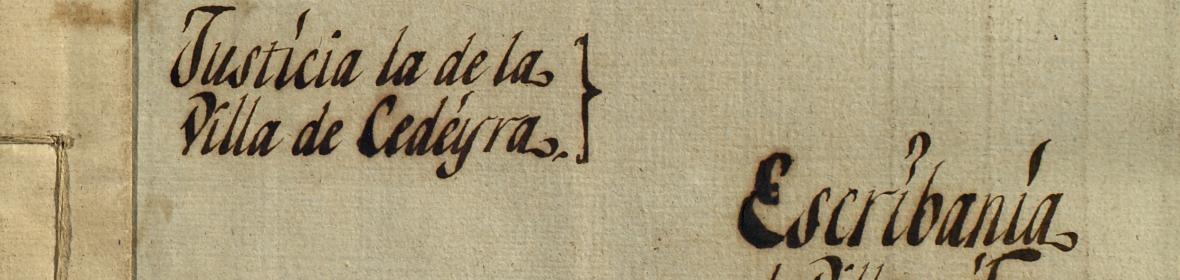 Justicia la de la
Villa de Cedéyra.
Escribanía